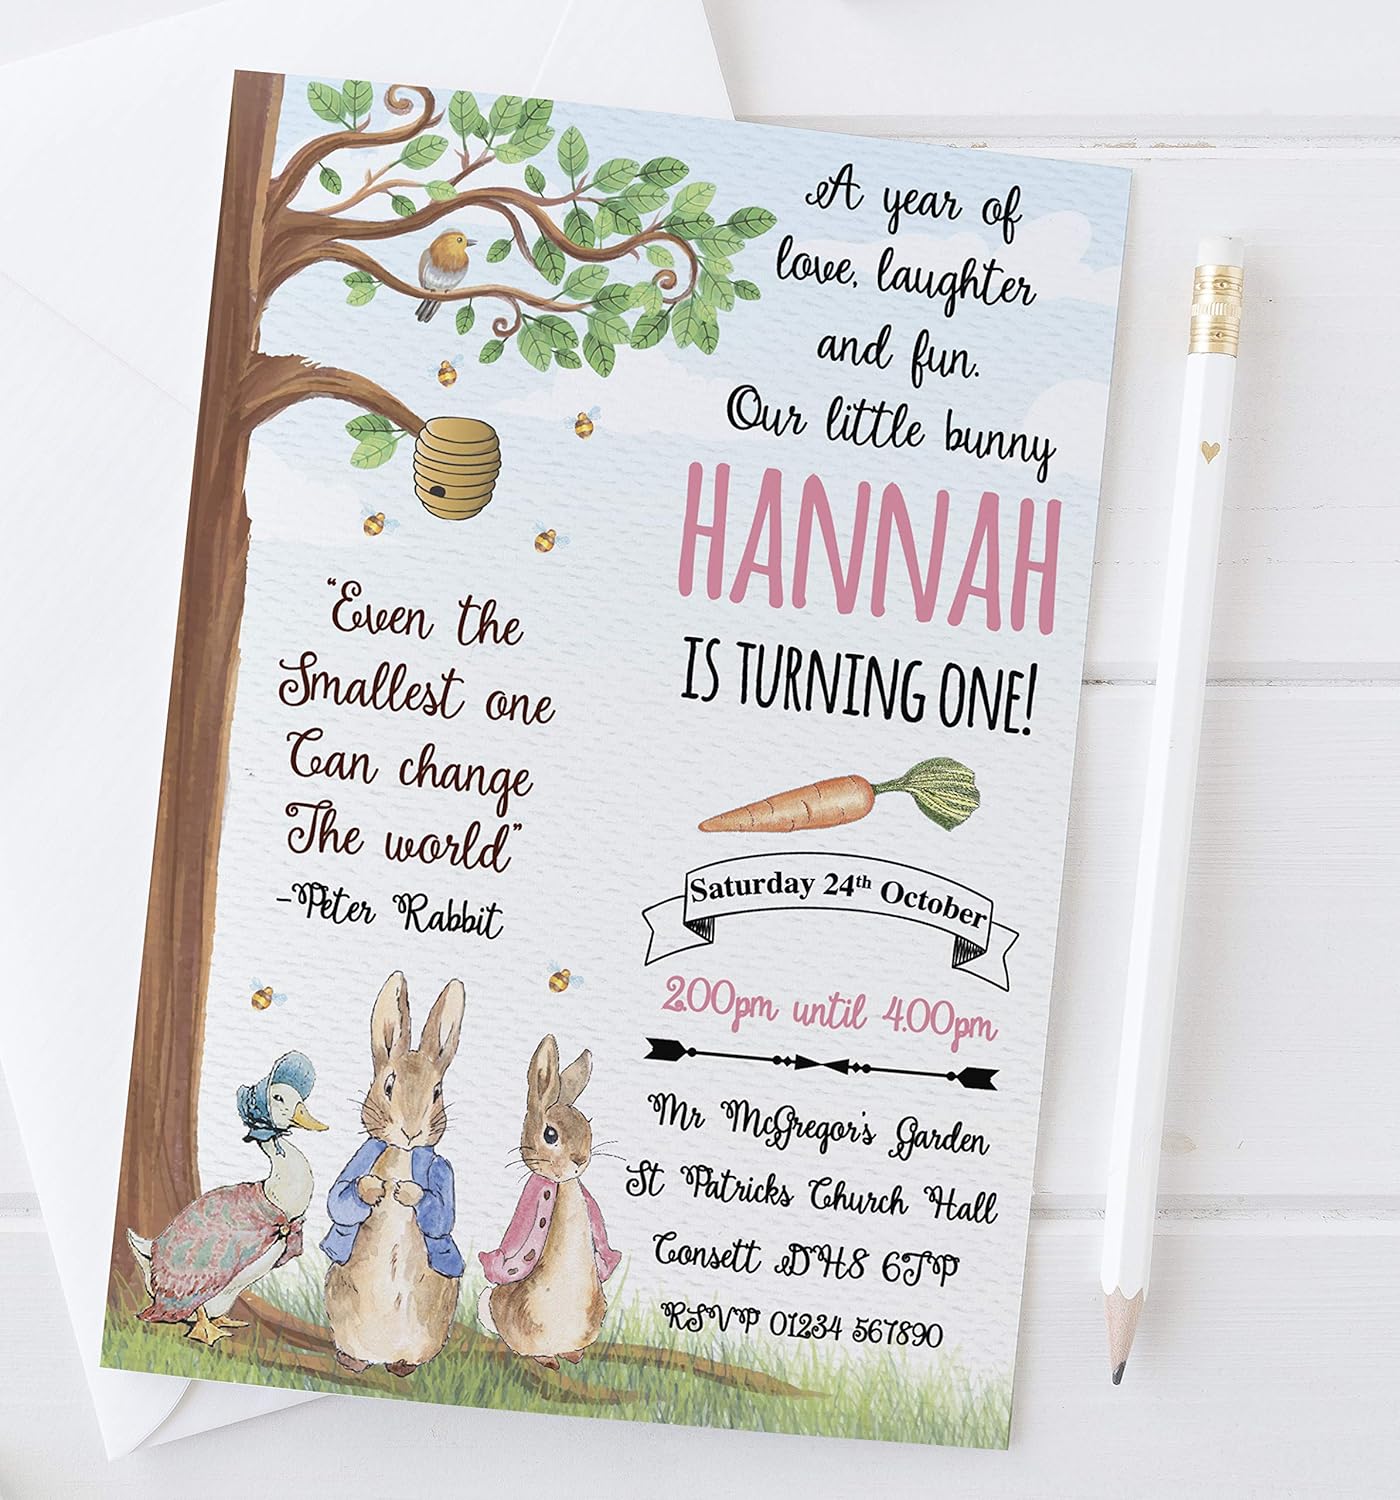 A year of
love, laughter
and fun.
Our little bunny
HANNAH
IS TURNING ONE!
Saturday 24th October
2.00pm until 4.00pm
Mr McGregor's Garden
St Patricks Church Hall
Consett DH8 6TP
RSVP 01234 567890
"Even the
Smallest one
Can change
The world"
-Peter Rabbit